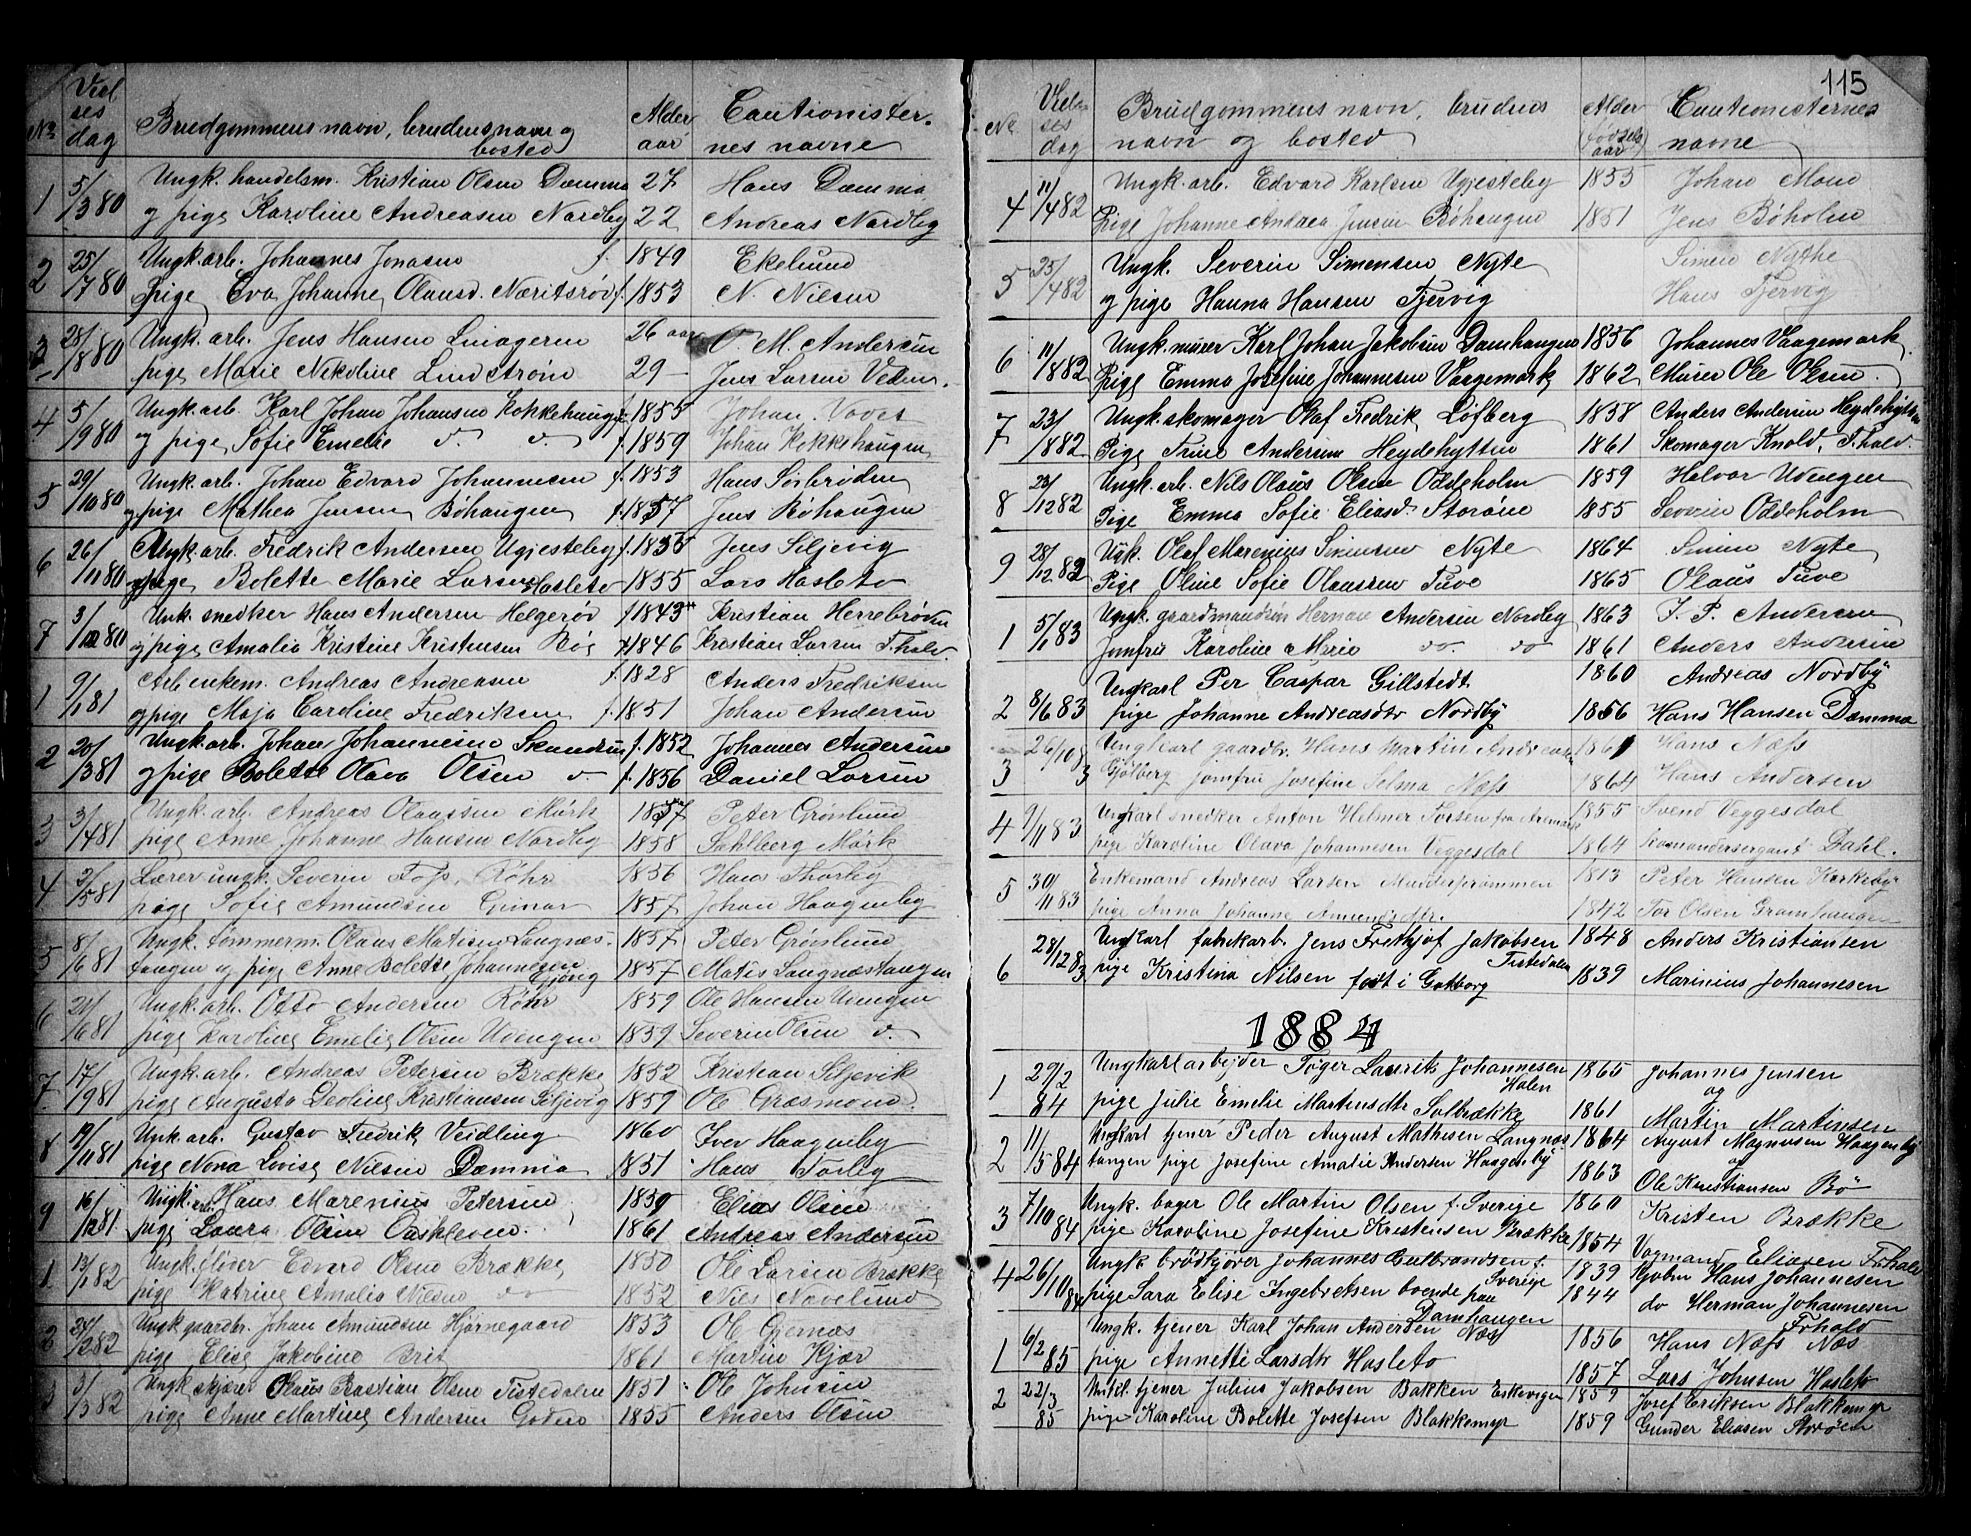 115
No Vielsesdag Brudgommens navn, brudens navn og bosted Alder aar Cautionisternes navne
1 5/3 80 Ungk. handelsm. Kristian Olsen Damma 27 Hans Damma
og pige Karoline Andreasen Nordby 22 Andreas Nordby
2 25/7 80 Ungk. arb. Johannes Jonasen f. 1849 Ekelund
Pige Eva Johanne Olausd. Næritsrød f. 1853 N. Nilsen
3 28/8 80 Ungk. arb. Jens Hansen 26 aar O. M. Andersen
pige Marie Nikoline Lindstrøm 29 Jens Larsen
4 5/9 80 Ungk. arb. Karl Johan Johansen Kokkehaugen f. 1855 Johan
og pige Sofie Emelie f. 1859 Johan Kokkehaugen
5 29/10 80 Ungk. arb. Johan Edvard Johannesen f. 1853 Hans Sørbrøden
og pige Mathea Jensen Bøhaugen f. 1857 Jens Bøhaugen
6 26/11 80 Ungk. arb. Fredrik Andersen Ugjesteby f. 1855 Jens Siljevig
og pige Bolette Marie Larsen Hasleto 1855 Lars Hasleto
7 3/12 80 Unk. snedker Hans Andersen Helgerød f. 1843 Kristian Herrebrøden
og pige Amalia Kristine Kristensen Bø f. 1846 Kristian Larsen F.hald.
1 9/1 81 Arb. enkem. Andreas Andreasen f. 1828 Anders Fredriksen
og pige Maja Caroline Fredriksen f. 1851 Johan Andersen
2 20/3 81 Ungk. arb. Johan Johannesen f. 1852 Johannes Andersen
og pige Bolette Olava Olsen f. 1856 Daniel Larsen
3 3/4 81 Ungk. arb. Andreas Olaussen Mørk 1857 Peter Grønlund
pige Anne Johanne Hansen Nordby 1858 Sahlberg Mørk
4 2/5 81 Lærer ungk. Severin Foss, Røhr 1856 Hans Thorby
pige Sofie Amundsen 1857 Johan Haagenby
5 8/6 81 Ungk. tømmerm. Olaus Matisen Langnes- 1857 Peter Grønlund
tangen og pige Anne Bolette Johannesen 1857 Matis Langnæstangen
6 21/6 81 Ungk. arb. Otto Andersen Røhr 1859 Ole Hansen Uvengen
pige Karoline Emelie Olsen Uvengen 1859 Severin Olsen
7 17/9 81 Ungk. arb. Andreas Petersen Brække 1852 Kristian Siljevik
pige Augusta Kristiansen Siljevig 1859 Ole
8 19/11 81 Unk. arb. Gustav Fredrik Veidling 1860 Iver Haagenby
pige Nona Lovise Nielsen Damma 1851 Hans Torby
9 16/12 81 Ungk. arb. Hans Marenius Petersen 1859 Elias Olsen
pige Laura Olsen 1861 Andreas Andersen
1 13/1 82 Ungk. fløder Edvard Olsen Brække 1850 Ole Larsen Brække
pige Katrine Amalia Nilsen do 1852 Nils
2 24/2 82 Ungk. gaardbr. Johan Amundsen Hjørnegaard 1853 Ole
pige Elise Jakobine Brit 1861 Martin Kjær
3 3/3 82 Ungk. skjærer Olaus Bastian Olsen Tistedalen 1851 Ole Johnsen
pige Anne Martine Andersen 1855 Anders Olsen
No Vielsesdag Brudgommens navn, brudens navn og bosted Alder (fødsels aar) Cautionisternes navne
4 11/4 82 Ungk. arb. Edvard Karlsen Ugjesteby 1855 Johan
Pige Johanne Andrea Jensen Bøhaugen 1851 Jens Bøholm
5 25/4 82 Ungk. Severin Simensen Nyte Simen Nythe
og pige Hanna Hansen Tjervig Hans Tjervig
6 11/8 82 Ungk. murer Karl Johan Jakobsen Damhaugen 1856 Johannes Vaagemark
Pige Emma Josefine Johannesen Vaagemark 1862 Murer Ole Olsen
7 23/8 82 Ungk. skomager Olaf Fredrik Løfberg 1858 Anders Andersen Heydehytten
Pige Trine Andersen Heydehytten 1861 Skomager Knold, F.hald.
8 23/12 82 Ungk. arb. Nils Olaus Olsen Oddeholm 1859 Halvor Uvengen
Pige Emma Sofie Eliasd. Storøen 1855 Severin Oddeholm
9 28/12 82 Ungk. Olaf Marenius Simensen Nyte 1864 Simen Nyte
Pige Oline Sofie Olaussen Tuve 1865 Olaus Tuve
1 5/1 83 Ungk. gaardmandsøn Herman Andersen Nordby 1863 J. P. Andersen
Jomfru Karoline Marie do. do 1861 Anders Andersen
2 8/6 83 Ungkarl Per Caspar Gillstedt 1860 Andreas Nordby
pige Johanne Andreasdtr Nordby 1856 Hans Hansen Damma
3 26/10 83 Ungkarl gaardbr. Hans Martin Andreasen 1861 Hans Næss
Gjølberg Jomfru Josefine Selma Næss 1864 Hans Andersen
4 9/11 83 Ungkarl snedker Anton Helmer Torsen fra Aremark 1855 Svend Veggesdal
pige Karoline Olava Johannesen Veggesdal 1864 Komandersergant Dahl.
5 30/11 83 Enkemand Andreas Larsen 1813 Peter Hansen Kirkeby
pige Anna Johanne Amundsdtr. 1842 Tor Olsen Gramhaugen
6 28/12 83 Ungkarl fabrikarb. Jens Frethjof Jakobsen 1848 Anders Kristiansen
Tistedalen
pige Kristina Nilsen født i Gøtborg 1839 Marinius Johannesen
1884
1 29/2 84 Ungkarl arbejder Tøger Laurits Johannesen 1865 Johannes Jensen
Holen og
pige Julie Emelie Martinsdtr Solbrække 1861 Martin Martinsen
2 11/5 84 Ungkarl tjener Peder August Mathisen Langnæs- 1864 August Magnusen Haagenby
tangen pige Josefine Amalie Andersen Haagenby 1863 og Ole Kristiansen Bø
3 7/10 84 Ungk. bager Ole Martin Olsen f. Sverige 1860 Kristen Brække
pige Karoline Josefine Kristensen Brække 1854 Vogmand Eliasen Frhald
4 26/10 84 Ungk brødkjører Johannes Gulbrandsen f. Sverige 1839 Kjøbm Hans Johannesen
pige Sara Elise Ingebretsen boende paa Damhaugen 1844 do Herman Johannesen Frhald
1 6/2 85 Ungk. tjener Karl Johan Andersen Næss 1856 Hans Næss Næs
pige Annette Larsdtr Hasleto 1857 Lars Johnsen Hasleto
2 22/3 85 tjener Julius Jakobsen Bakken Enkevigen 1859 Josef Eriksen Blakkemyr
pige Karoline Bolette Josefsen Blakkemyr 1859 Gunder Eliasen Storøen